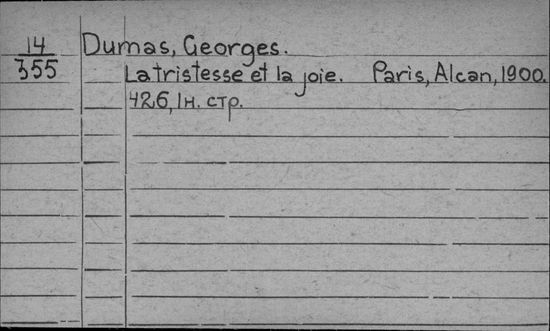 14 Dumas, Georges.
355 La tristesse et la joie. Paris, Alcan, 1900.
426, 1н. стр.